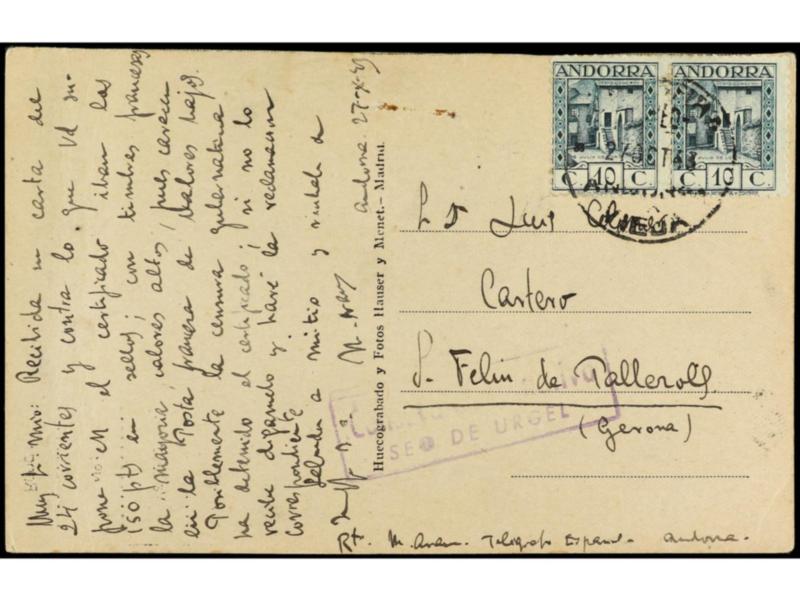 Andorra 27-X-
Muy Sr. mio: Recibida su carta del
24 corrientes y contra lo que Vd su-
pone en el certificado iban las
150 pts en sellos; con timbres franceses
la mayoria, valores altos, pues carecen
en la Posta francesa de valores bajos.
Posiblemente la censura gubernativa
ha detenido el certificado; si no lo
recibe digamelo y haré la reclamacion
correspondiente
Saluda a
Huecograbado y Fotos Hauser y Menet.- Madrid.
ANDORRA
C 10 C.
ANDORRA
C 10 C.
Sr D Luis
Cartero
S. Feliu de Pallerols
(Gerona)
SEO DE URGEL
Rte. M. Telégrafo Español. Andorra.